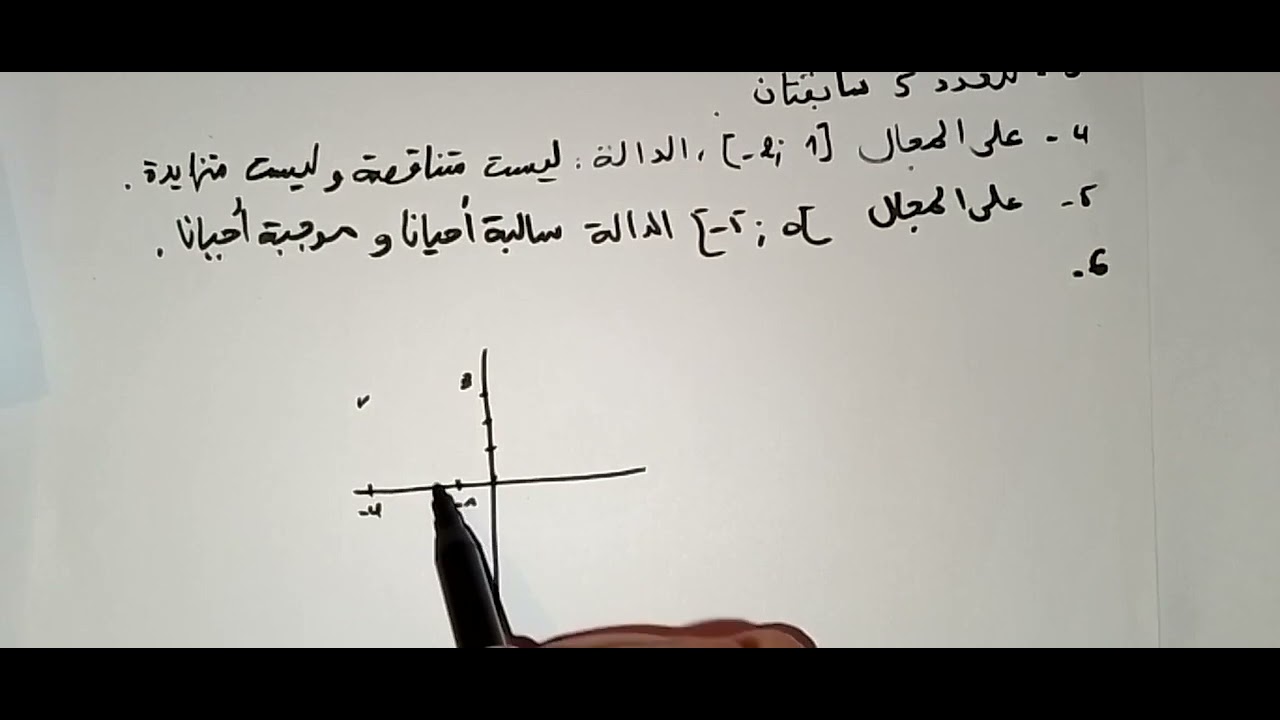 للعدد 5 سابقتان
4 - على المجال [-2; 1]، الدالة: ليست متناقصة و ليست متزايدة.
5 - على المجال [-5; 0[ الدالة سالبة أحيانا و موجبة أحيانا.
6 -
3
-4 -1